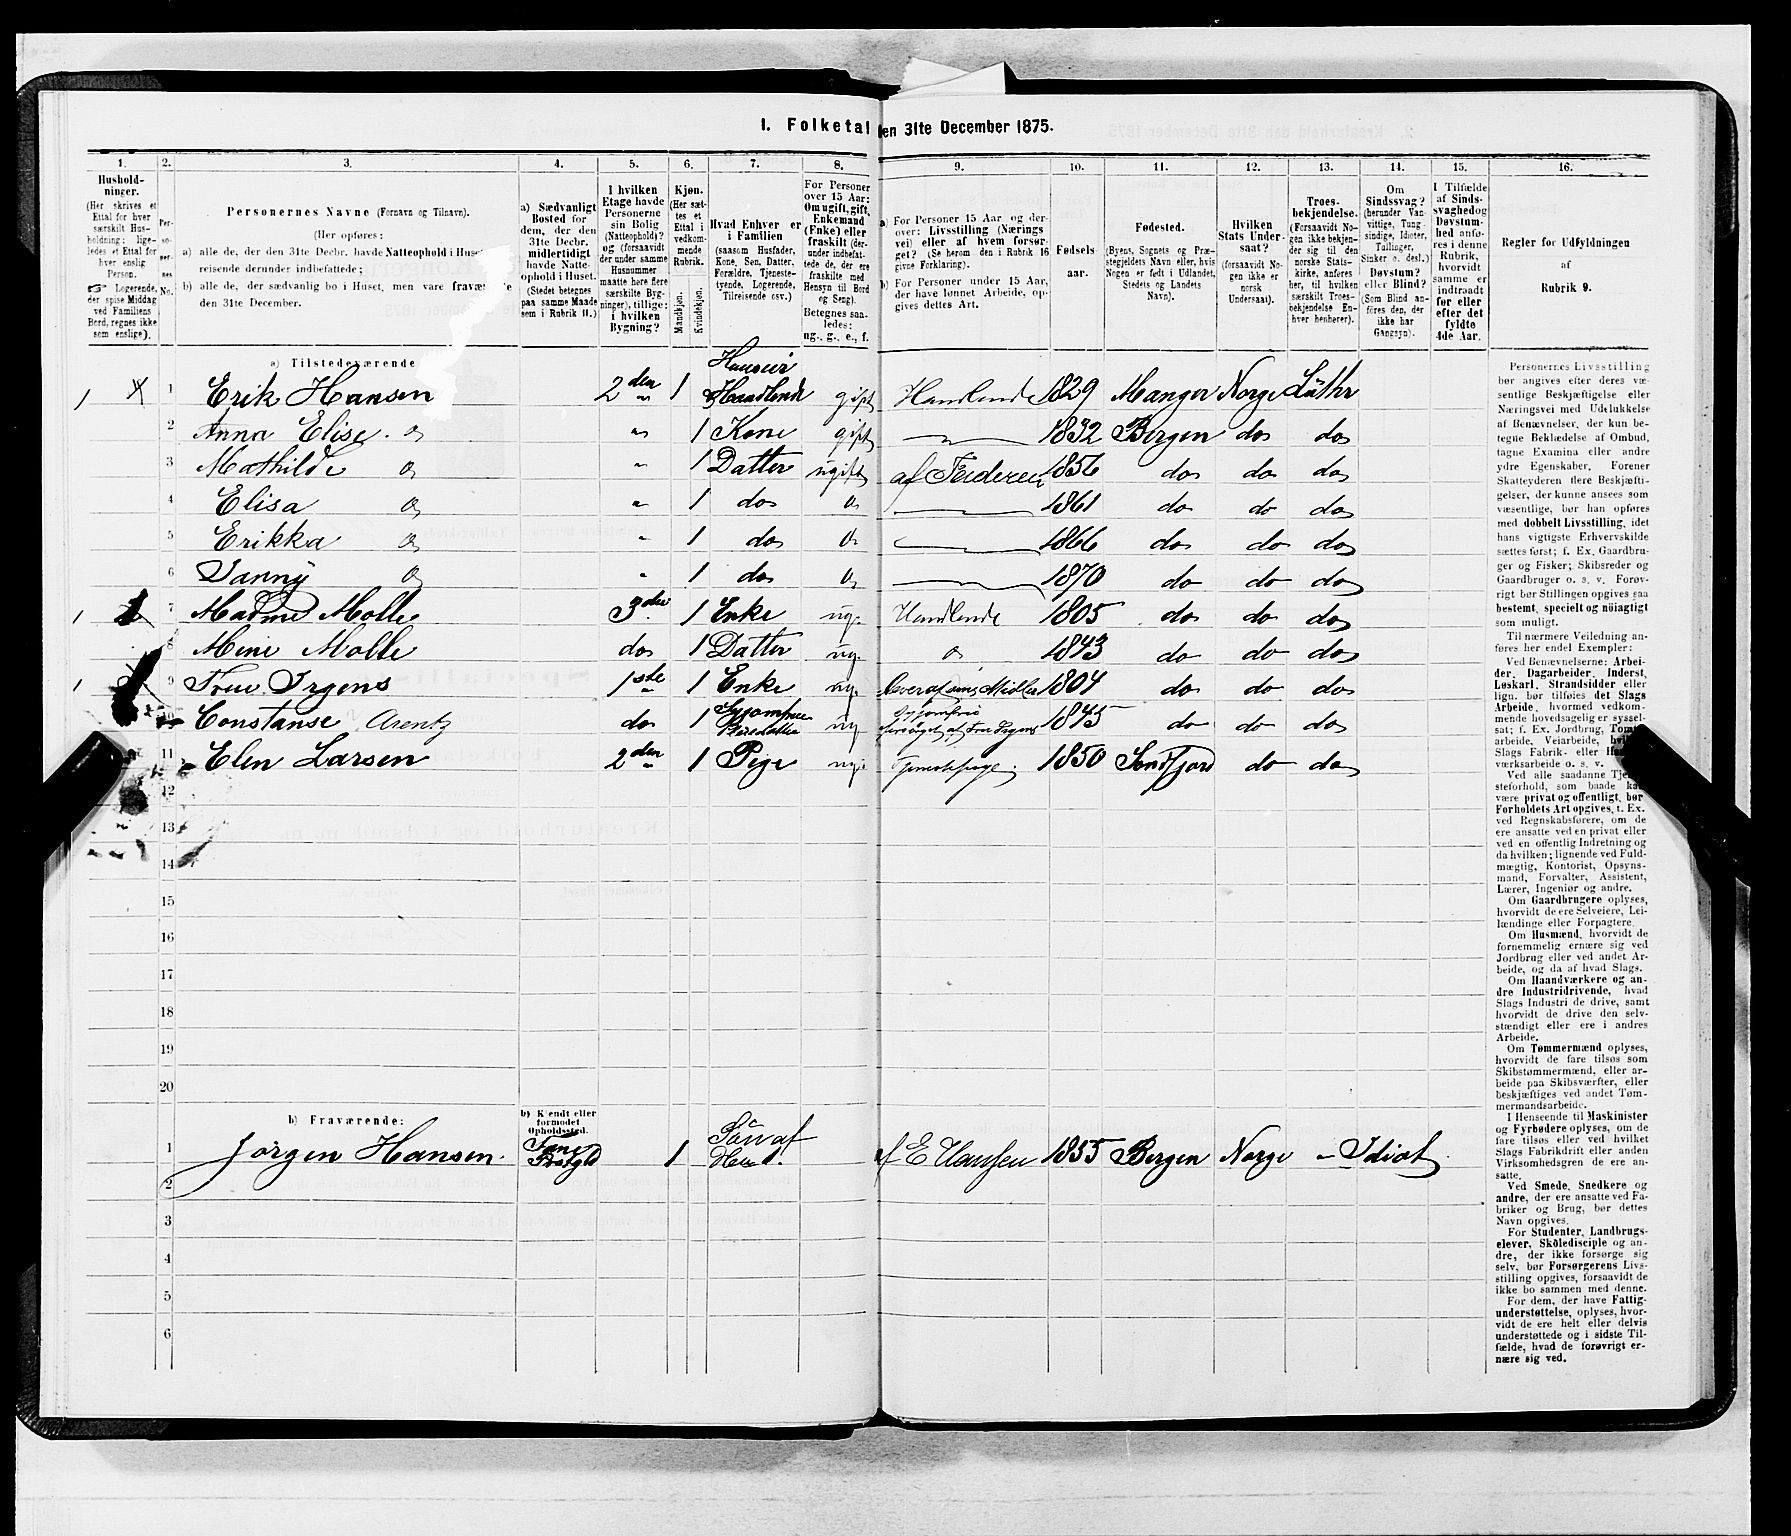 1. Folketal den 31te December 1875.
1. 2. 3. 4. 5. 6. 7. 8. 9. 10. 11. 12. 13. 14. 15. 16.
Hushold-
ninger.
(Her skrives et
Ettal for hver
særskilt Hus-
holdning; lige-
ledes et Ettal for
hver enslig
Person.
☞ Logerende,
der spise Middag
ved Familiens
Bord, regnes ikke
som enslige).
Per-
so-
ner-
nes
No.
Personernes Navne (Fornavn og Tilnavn).
(Her opføres:
a) alle de, der den 31te Decbr. havde Natteophold i Huset
reisende derunder indbefattede;
b) alle de, der sædvanlig bo i Huset, men vare fraværende
den 31te December.
a) Sædvanligt
Bosted for
dem, der den
31te Decbr.
midlertidigt
havde Natte-
ophold i Huset.
(Stedet betegnes
paa samme Maade
som i Rubrik 11.)
I hvilken
Etage havde
Personerne
sin Bolig
(Natteophold)?
og (forsaavidt
der under samme
Husnummer
maatte høre flere
særskilte Byg-
ninger), tillige:
i hvilken
Bygning?
Kjøn.
(Her sæt-
tes et
Ettal i
vedkom-
mende
Rubrik.
Mandkjøn.
Kvindekjøn.
Hvad Enhver er
i Familien
(saasom Husfader,
Kone, Søn, Datter,
Forældre, Tjeneste-
tyende, Logerende,
Tilreisende osv.)
For Personer
over 15 Aar:
Om ugift, gift,
Enkemand
(Enke) eller
fraskilt (der-
under indbefat-
tede de, der ere
fraskilte med
Hensyn til Bord
og Seng).
Betegnes saa-
ledes:
ug., g., e., f.
a) For Personer 15 Aar og der-
over: Livsstilling (Nærings
vei) eller af hvem forsør-
get? (Se herom den i Rubrik 16
givne Forklaring).
b) For Personer under 15 Aar,
der have lønnet Arbeide, op-
gives dettes Art.
Fødsels-
aar.
Fødested.
(Byens, Sognets og Præ-
stegjeldets Navn eller, hvis
Nogen er født i Udlandet,
Stedets og Landets
Navn).
Hvilken
Stats Under-
saat?
(forsaavidt No-
gen ikke er
norsk
Undersaat).
Troes-
bekjendelse.
(Forsaavidt No-
gen ikke bekjen-
der sig til den
norske Stats-
kirke, anføres
her, til hvilken
særskilt Troes-
bekjendelse En-
hver henhører).
Om
Sindssvag?
(herunder Van-
vittige, Tung-
sindige, Idioter,
Tullinger,
Sinker o. desl.)
Døvstum?
eller Blind?
(Som Blind an-
føres den, der
ikke har
Gangsyn).
I Tilfælde
af Sinds-
svaghed og
Døvstum-
hed anfø-
res i denne
Rubrik,
hvorvidt
samme er
indtraadt
før eller
efter det
fyldte
4de Aar.
Regler for Udfyldningen
af
Rubrik 9.
a) Tilstedeværende
1 1 Erik Hansen 2den 1 Huseier Handlende gift Handlende 1829 Manger Norge Luthr
2 Anna Elise do " 1 Kone gift 1832 Bergen do do
3 Mathilde do " 1 Datter ugift af Faderen 1856 do do do
4 Elisa do " 1 do do 1861 do do do
5 Erikka do " 1 do do 1866 do do do
6 Fanny do " 1 do do 1870 do do do
1 7 Madme Molle 3die 1 Enke ug. Handlende 1805 do do do
8 Mine Molle do 1 Datter ug. do 1843 do do do
1 9 Frue Irgens 1ste 1 Enke ug. Lever af sine Midler 1804 do do do
10 Constanse Arentz do 1 Syjomfrue ug Syjomfru forsörget af Frue Irgens 1845 do do do
11 Elen Larsen 2den 1 Pige ug. Tjenestepige. 1850 Söndfjord do do
12
13
14
15
16
17
18
19
20
b) Fraværende:
b) Kjendt eller
formodet
Opholdssted.
1 Jørgen Hansen. Fane 1 Sön af Hans. af E Hansen 1855 Bergen Norge – Idiot
2
3
4
5
6
Personernes Livsstilling
bør angives efter deres væ-
sentlige Beskjæftigelse eller
Næringsvei med Udelukkelse
af Benævnelser, der kun be-
tegne Beklædelse af Ombud,
tagne Examina eller andre
ydre Egenskaber. Forener
Skatteyderen flere Beskjæfti-
gelser, der kunne ansees som
væsentlige, bør han opføres
med dobbelt Livsstilling, idet
hans vigtigste Erhvervskilde
sættes først; f. Ex. Gaardbru-
ger og Fisker; Skibsreder og
Gaardbruger o. s. v. Forøv-
rigt bør Stillingen opgives saa
bestemt, specielt og nöiagtigt
som muligt.
Til nærmere Veiledning an-
føres her endel Exempler:
Ved Benævnelserne: Arbei-
der, Dagarbeider, Inderst,
Løskarl, Strandsidder eller
lign. bør tilføies det Slags
Arbeide, hvormed vedkom-
mende hovedsagelig er syssel-
sat; f. Ex. Jordbrug, Tomte-
arbeide, Veiarbeide, hvilket
Slags Fabrik- eller Haand-
værksarbeide o. s. v.
Ved alle saadanne Tjene-
steforhold, som baade kan
være privat og offentligt, bør
Forholdets Art opgives, t. Ex.
ved Regnskabsførere, om de
ere ansatte ved en privat eller
ved en offentlig Indretning og
da hvilken; lignende ved Fuld-
mægtig, Kontorist, Opsyns-
mand, Forvalter, Assistent,
Lærer, Ingeniør og andre.
Om Gaardbrugere oplyses,
hvorvidt de ere Selveiere, Lei-
lændinge eller Forpagtere.
Om Husmænd, hvorvidt de
fornemmelig ernære sig ved
Jordbrug eller ved andet Ar-
beide, og da af hvad Slags.
Om Haandværkere og an-
dre Industridrivende, hvad
Slags Industri de drive, samt
hvorvidt de drive den selv-
stændigt eller ere i andres
Arbeide.
Om Tømmermænd oplyses,
hvorvidt de fare tilsøs som
Skibstømmermænd, eller ar-
beide paa Skibsværfter, eller
beskjæftiges ved andet Tøm-
mermandsarbeide.
I Henseende til Maskinister
og Fyrbødere oplyses, om de
fare tilsøs eller ved hvilket
Slags Fabrikdrift eller anden
Virksomhedsgren de ere an-
satte.
Ved Smede, Snedkere og
andre, der ere ansatte ved Fa-
briker og Brug, bør dettes
Navn opgives.
For Studenter, Landbrugs-
elever, Skoledisciple og an-
dre, der ikke forsørge sig
selv, bør Forsørgerens Livs-
stilling opgives, forsaavidt de
ikke bo sammen med denne.
For dem, der have Fattig-
understøttelse, oplyses, hvor-
vidt de ere helt eller delvis
understøttede og i sidste Til-
fælde, hvad de forøvrigt er-
nære sig ved.